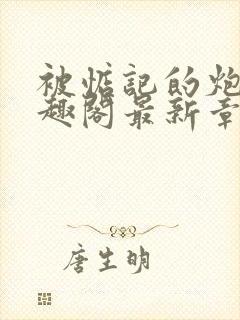 被惦记的炮
趣阁最新章
唐生明